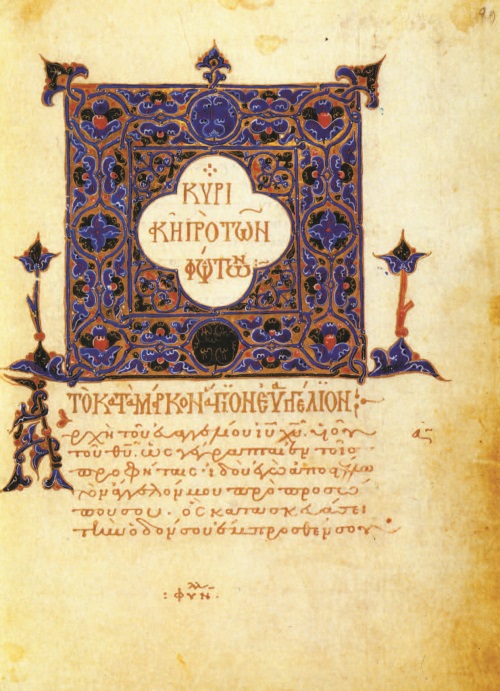 ΚΥΡΙ
ΚΗ ΠΡΟ ΤΩΝ
ΦΩΤΩΝ
ΤΟ ΚΑΤΑ ΜΑΡΚΟΝ ΑΓΙΟΝ ΕΥΑΓΓΕΛΙΟΝ
Ἀρχὴ τοῦ εὐαγγελίου ἰ̅υ̅ χ̅υ̅ υἱοῦ
τοῦ θ̅υ̅. ὡς γέγραπται ἐν τοῖς
προφήταις ἰδοὺ ἐγὼ ἀποστέλλω
τὸν ἄγγελόν μου πρὸ προσώ
που σου. ὃς κατασκευάσει
τὴν ὁδόν σου ἔμπροσθέν σου